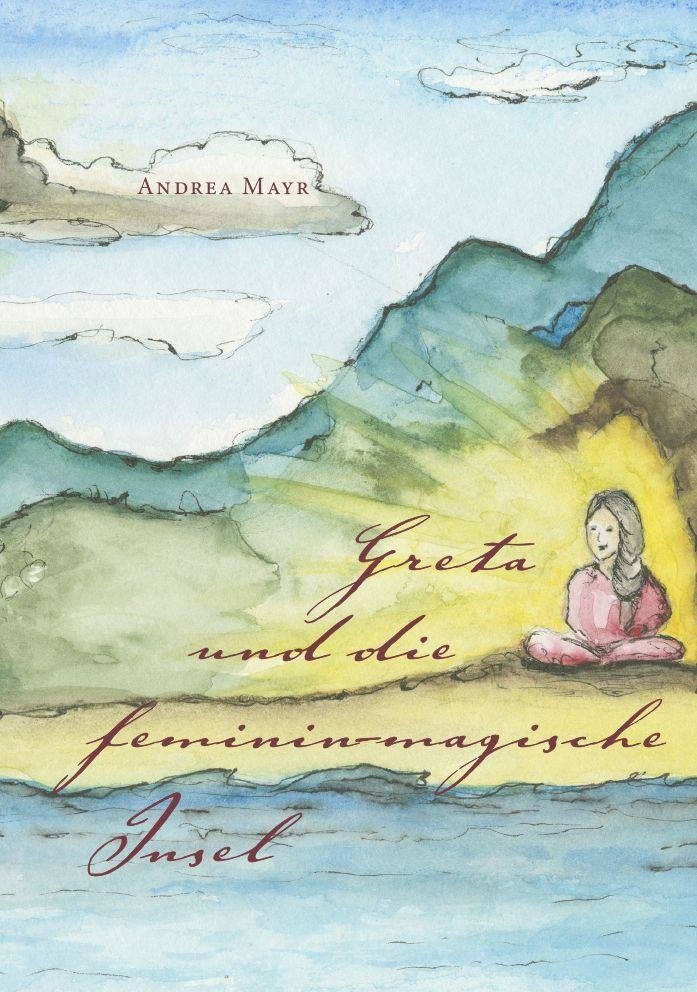 ANDREA MAYR
Greta
und die
feminin-magische
Insel